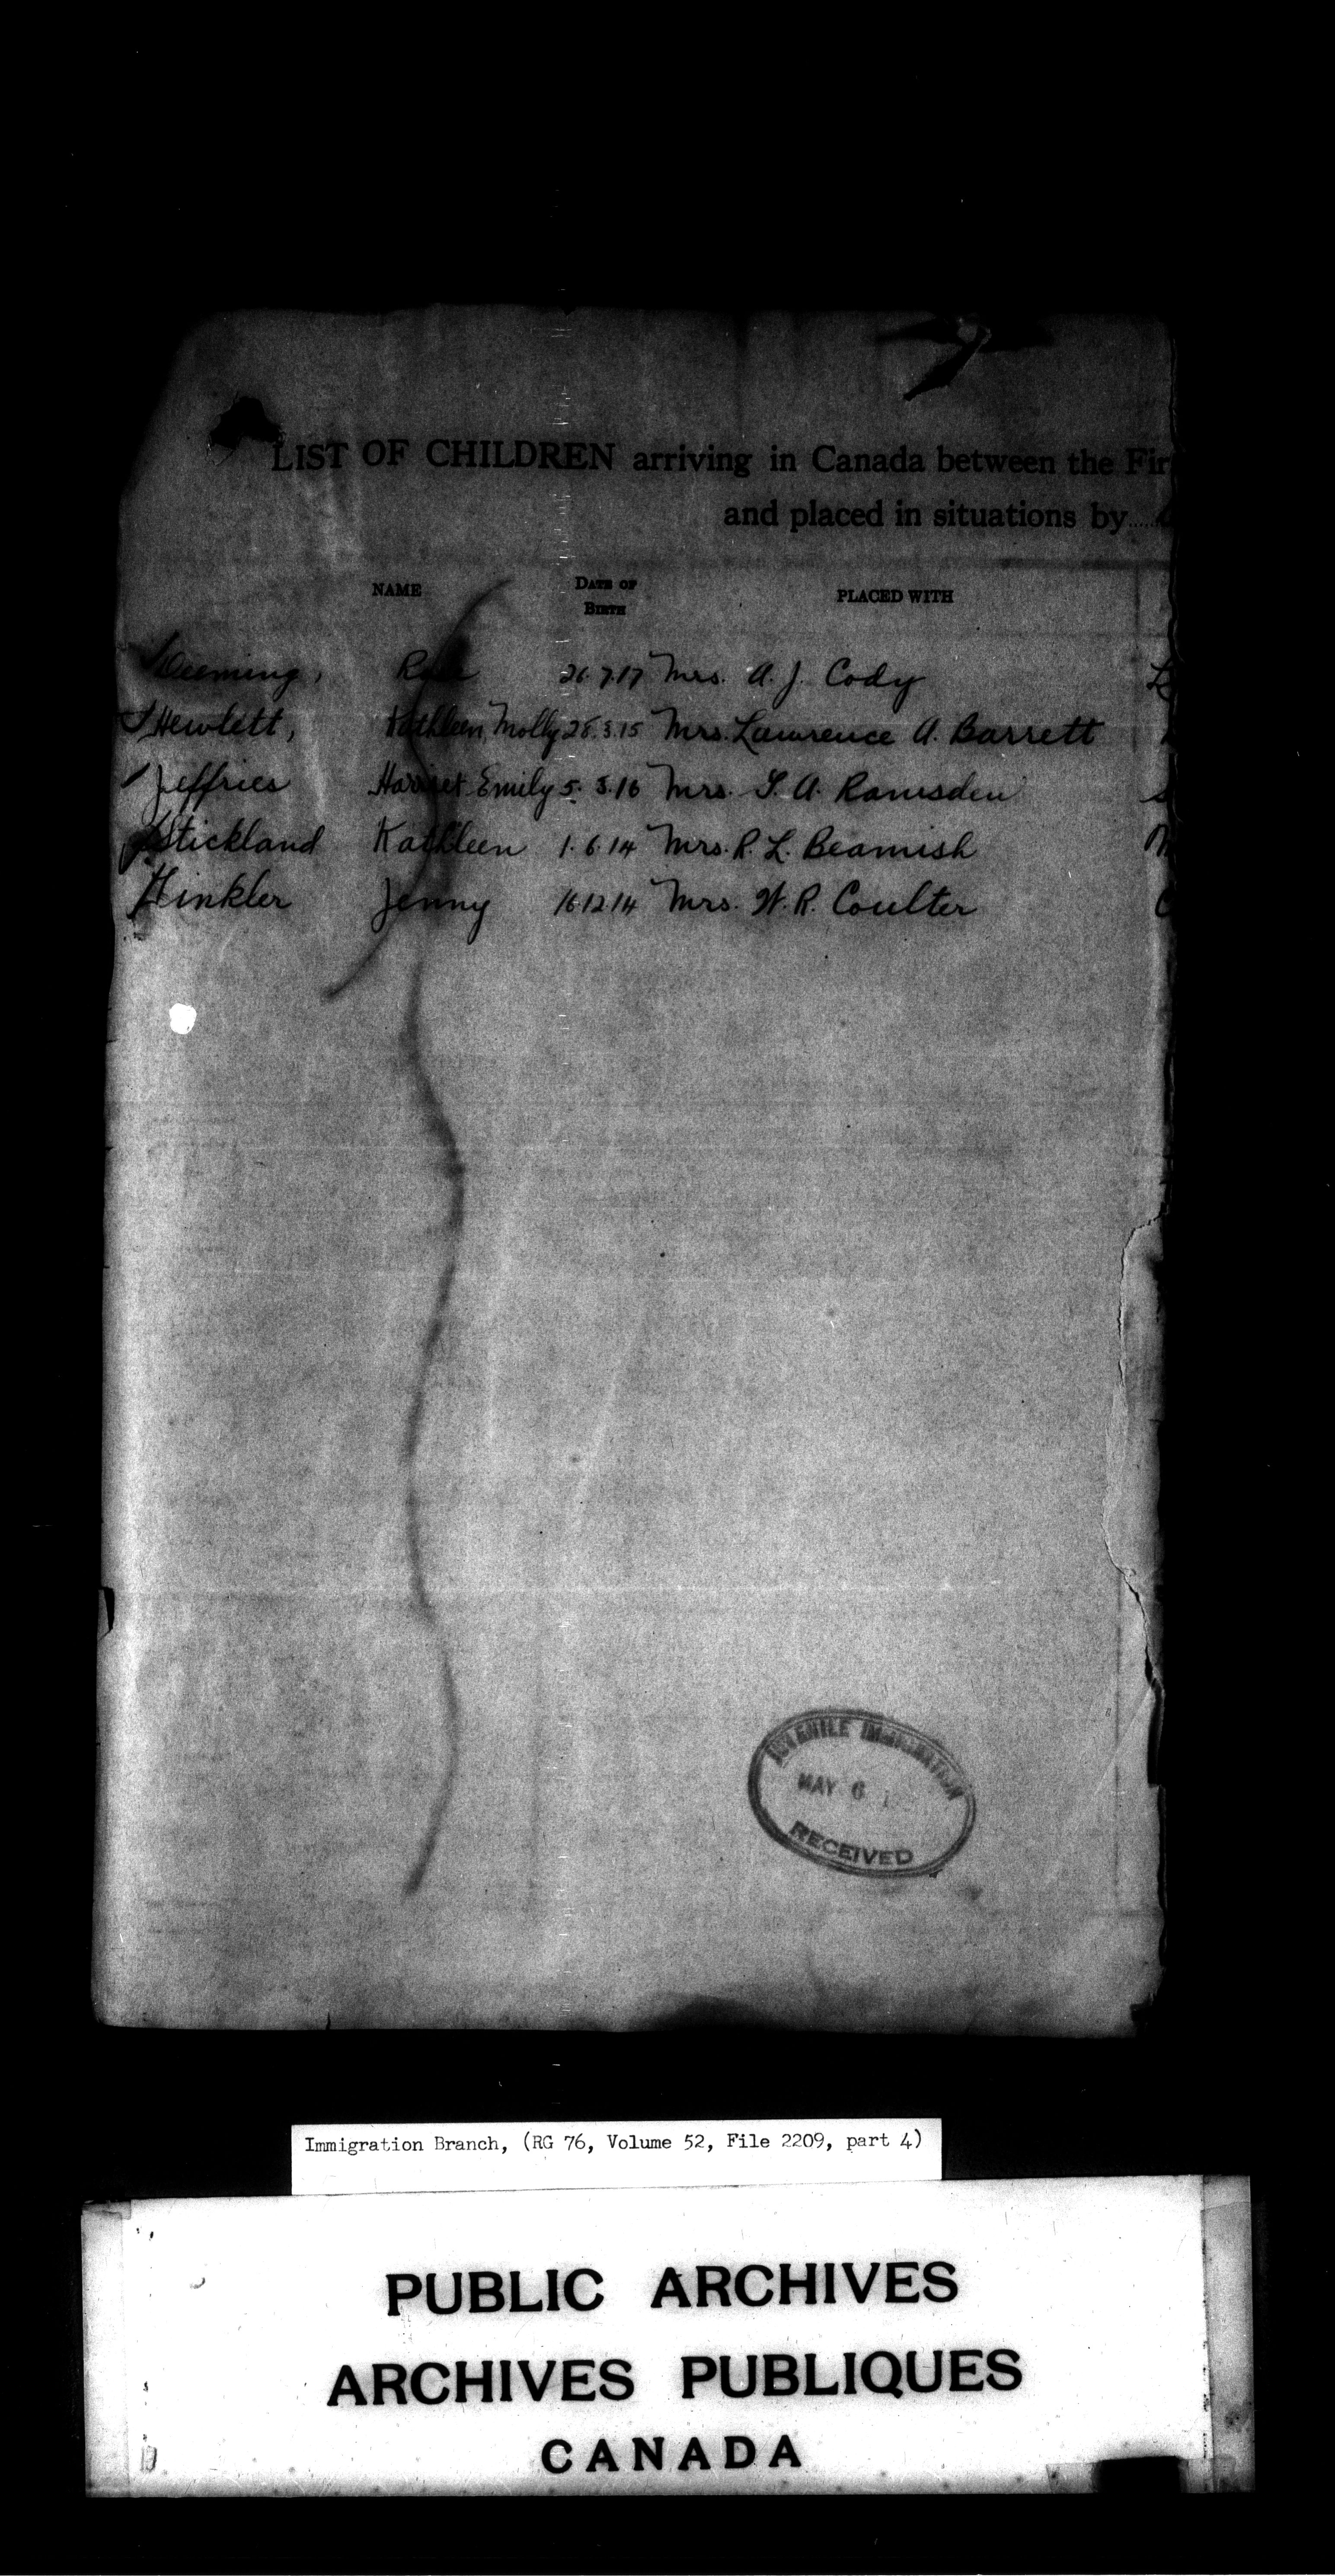 LIST OF CHILDREN arriving in Canada between the Fir
and placed in situations by
NAME DATE OF BIRTH PLACED WITH
Deeming, 26.7.17 Mrs. A. J. Cody
Hewlett, Kathleen Molly 28.3.15 Mrs. Lawrence A. Barrett
Jeffries Harriet Emily 5. 3.16 Mrs. T. A. Ramsden
Stickland Kathleen 1.6.14 Mrs. R. L. Beamish
Hinkler Jenny 16.12.14 Mrs. W. R. Coulter
JUVENILE IMMIGRATION
MAY 6
RECEIVED
Immigration Branch, (RG 76, Volume 52, File 2209, part 4)
PUBLIC ARCHIVES
ARCHIVES PUBLIQUES
CANADA